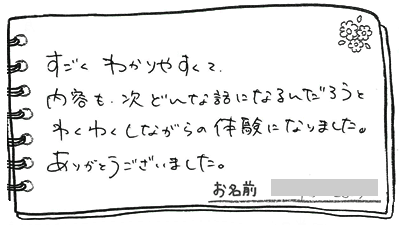 すごく わかりやすくて、
内容も、次どんな話になるんだろうと
わくわくしながらの体験になりました。
ありがとうございました。
お名前